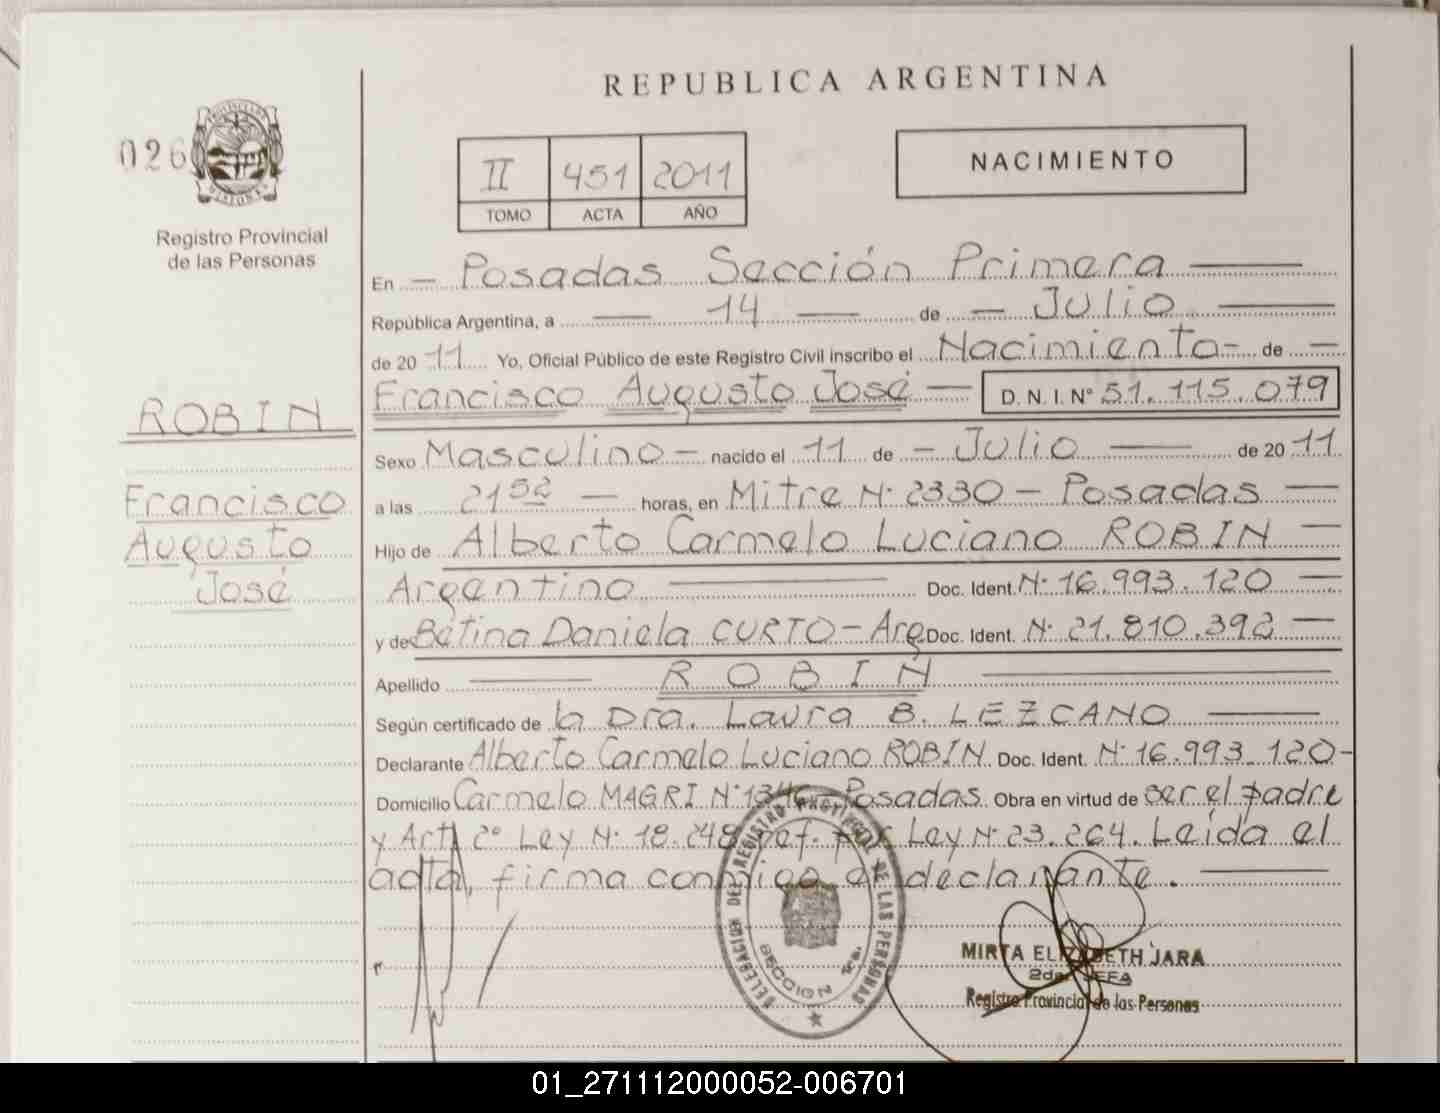 REPUBLICA ARGENTINA
026
II 451 2011
TOMO ACTA AÑO
NACIMIENTO
Registro Provincial
de las Personas
En Posadas Sección Primera
República Argentina, a 14 de Julio
de 20 11 Yo, Oficial Público de este Registro Civil inscribo el Nacimiento de
Francisco Augusto José D. N. I. Nº 51.115.079
ROBIN
Francisco
Augusto
José
Sexo Masculino nacido el 11 de Julio de 20 11
a las 21 52 horas, en Mitre N· 2330 - Posadas
Hijo de Alberto Carmelo Luciano ROBIN
Argentino Doc. Ident. N· 16.993.120
y de Betina Daniela CURTO - Arg. Doc. Ident. N· 21.810.392
Apellido ROBIN
Según certificado de la Dra. Laura B. LEZCANO
Declarante Alberto Carmelo Luciano ROBIN Doc. Ident. N· 16.993.120-
Domicilio Carmelo MAGRI N· 1346 Posadas. Obra en virtud de ser el padre
y Art. 2º Ley N· 18.248 Ley N· 23.264. Leída el
acta, firma conmigo el declarante.
DELEGACION DEL REGISTRO PROVINCIAL DE LAS PERSONAS
SECCION 1ra.
MIRTA ELIZABETH JARA
2da JEFA
Registro Provincial de las Personas
01_271112000052-006701